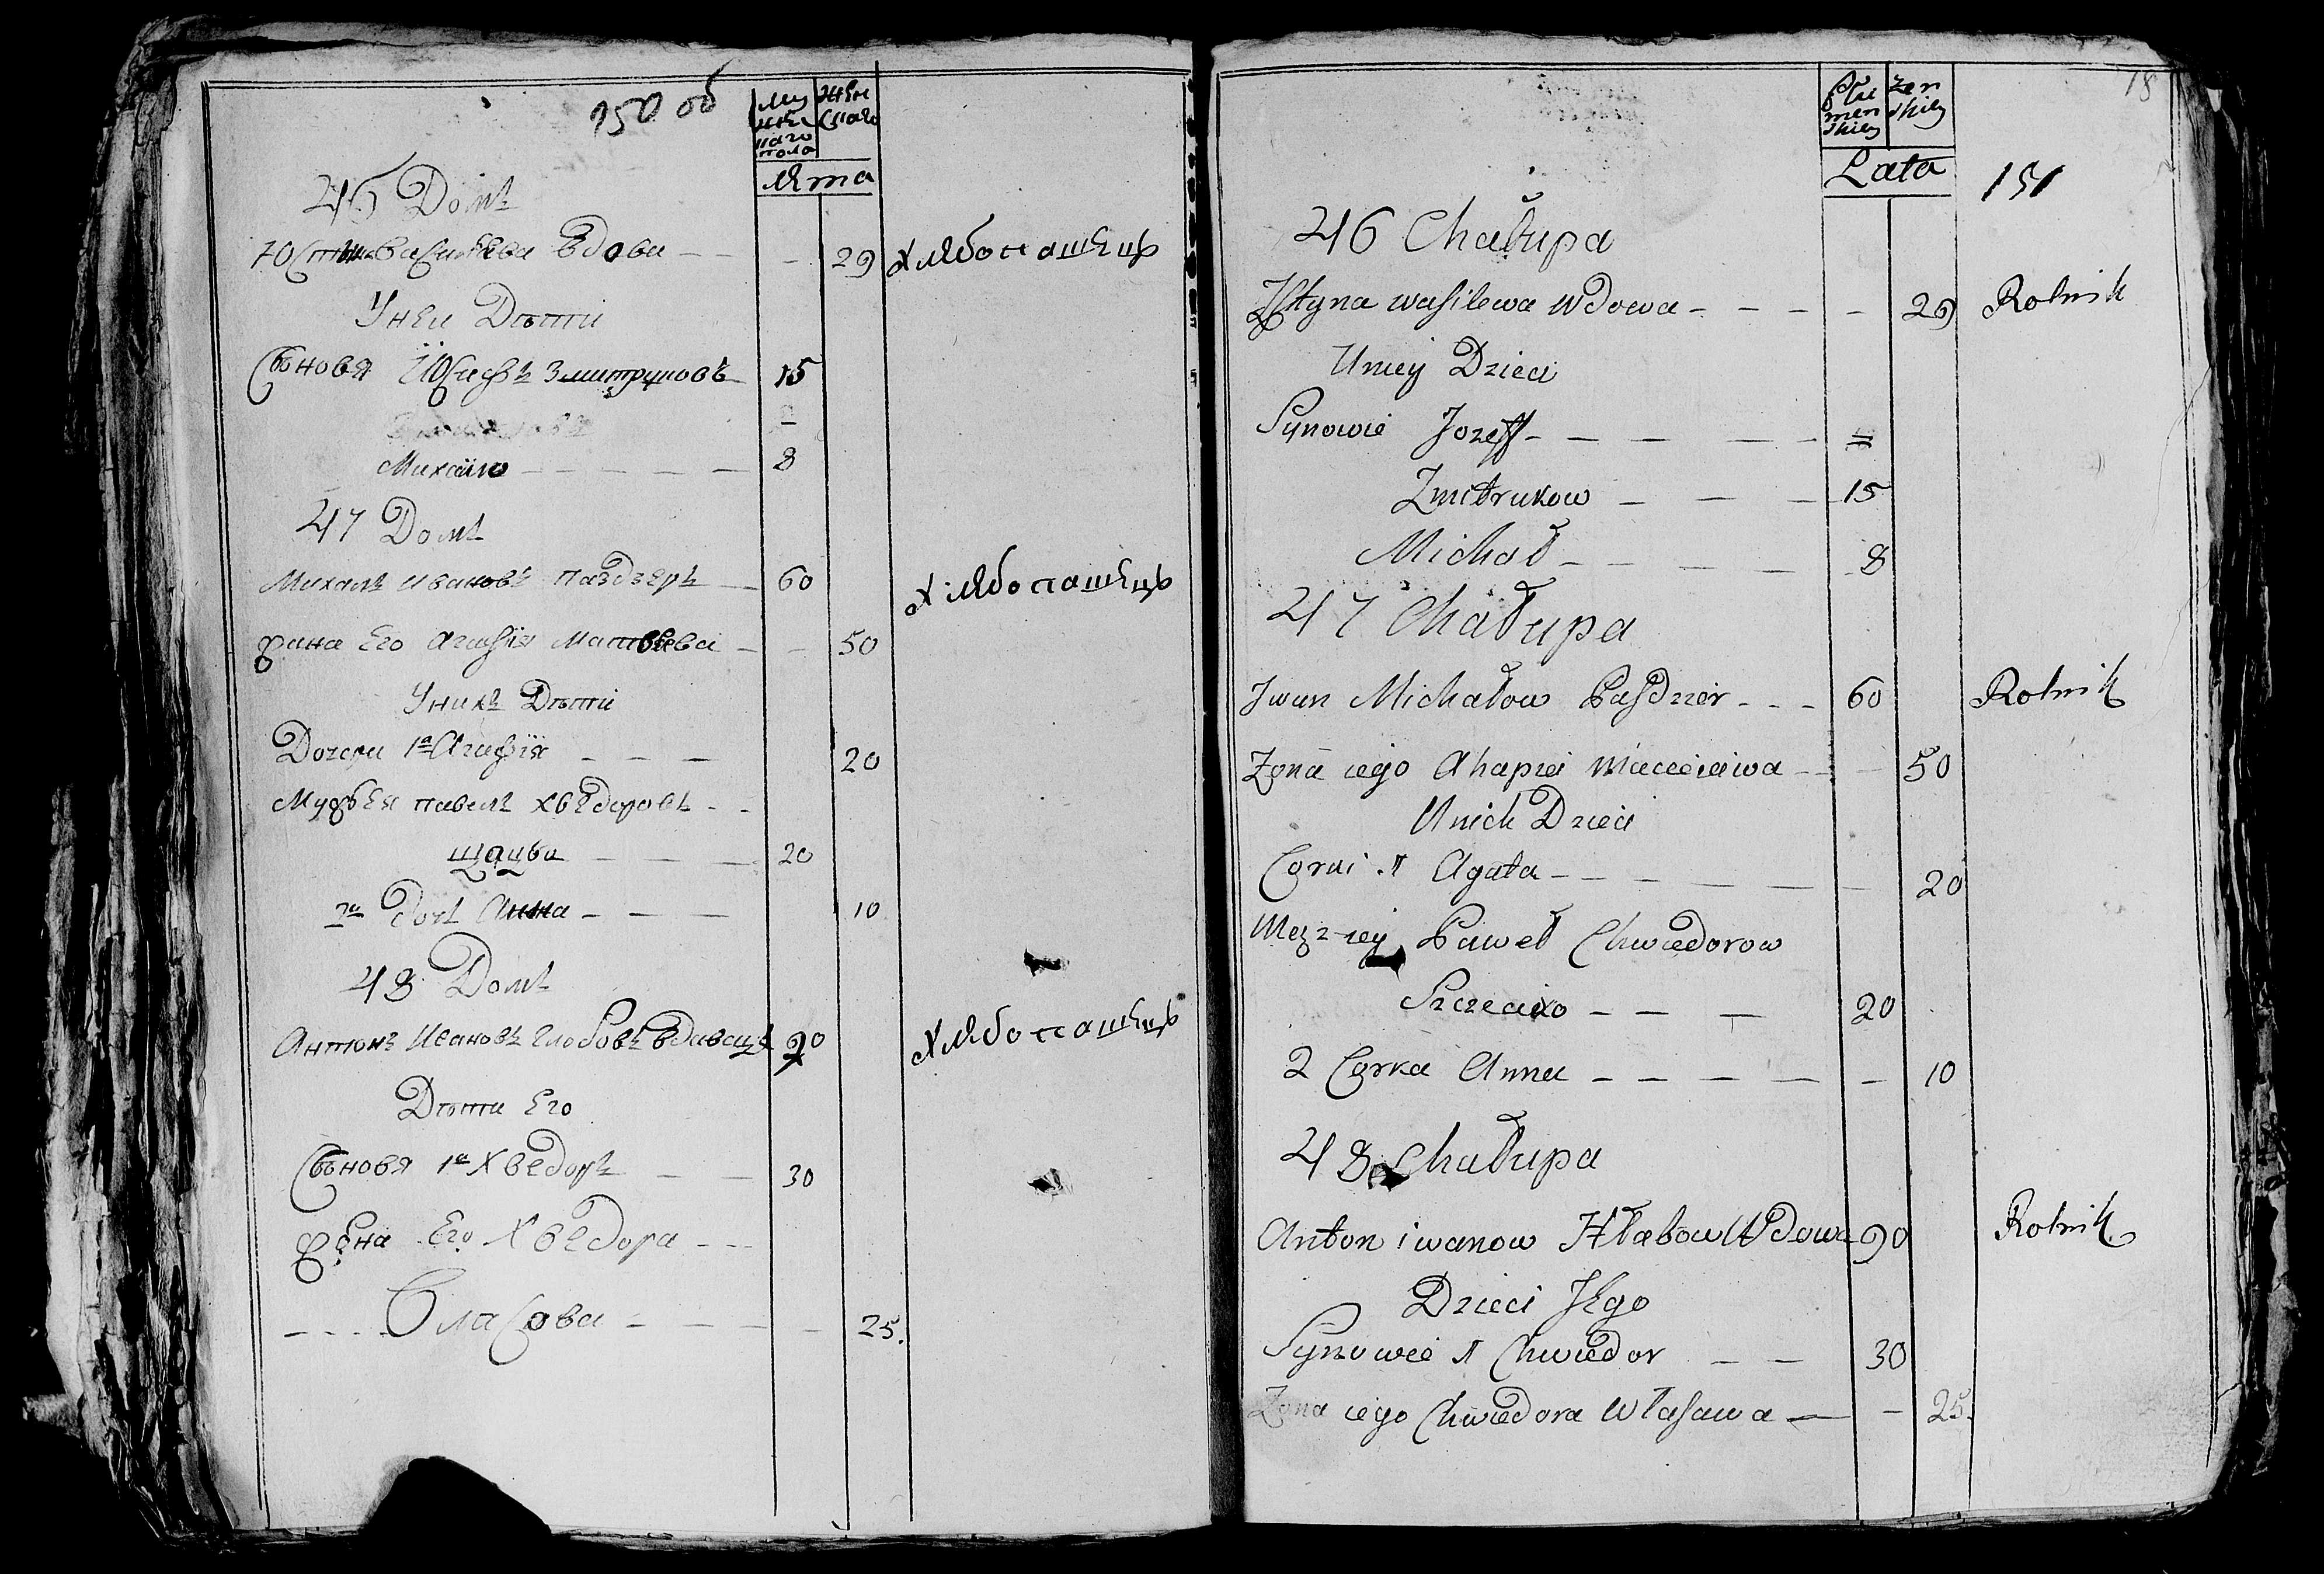 150 об
Му
жес
каго
пола
жен
скаго
Лѣта
46 Домъ
Юстына Василева вдова — — — 29 хлѣбопашецъ
У неи Дѣти
Сыновя Юсифъ Змитруковъ 15
Михайло — — — — — 8
47 Домъ
Михалъ Ивановъ Паздзеръ — 60 хлѣбопашецъ
жана Его Агафія Матвѣева — — 50
У нихъ Дѣти
Дочери 1я Агафія — — — 20
Муж Ея Павелъ Хведоровъ - -
— — — 20
2я Дочь Анна — — — 10
48 Домъ
Антонъ Ивановъ Глобовъ вдавецъ 90 хлѣбопашецъ
Дѣти Его
Сыновя 1й Хведоръ — — 30
жена Его Хведора — —
— - - - Власова — — — — — 25.
18
męn
skiey
żen
skiey
Lata
151
46 Chałupa
Jstyna Wasilewa Wdowa — — — — 29 Rolnik
Uniey Dzieci
Synowie Jozeff — — — — —
Zmitrukow — — — 15
Michał — — — — 8
47 Chałupa
Jwan Michałow Pasdzier - - - 60 Rolnik
Zona iego Ahapiei Macieiewa — — 50
Unich Dzieci
Corki 1 Agata — — — — — — — 20
Mąz iey Paweł Chwiedorow
Szczecko — — — 20
2 Corka Anna — — — — — 10
48 Chałupa
Anton iwanow Hłabow Wdowa 90 Rolnik
Dzieci Jego
Synowie 1 Chwiedor — — 30
Zona iego Chwiedora Własawa — — 25.